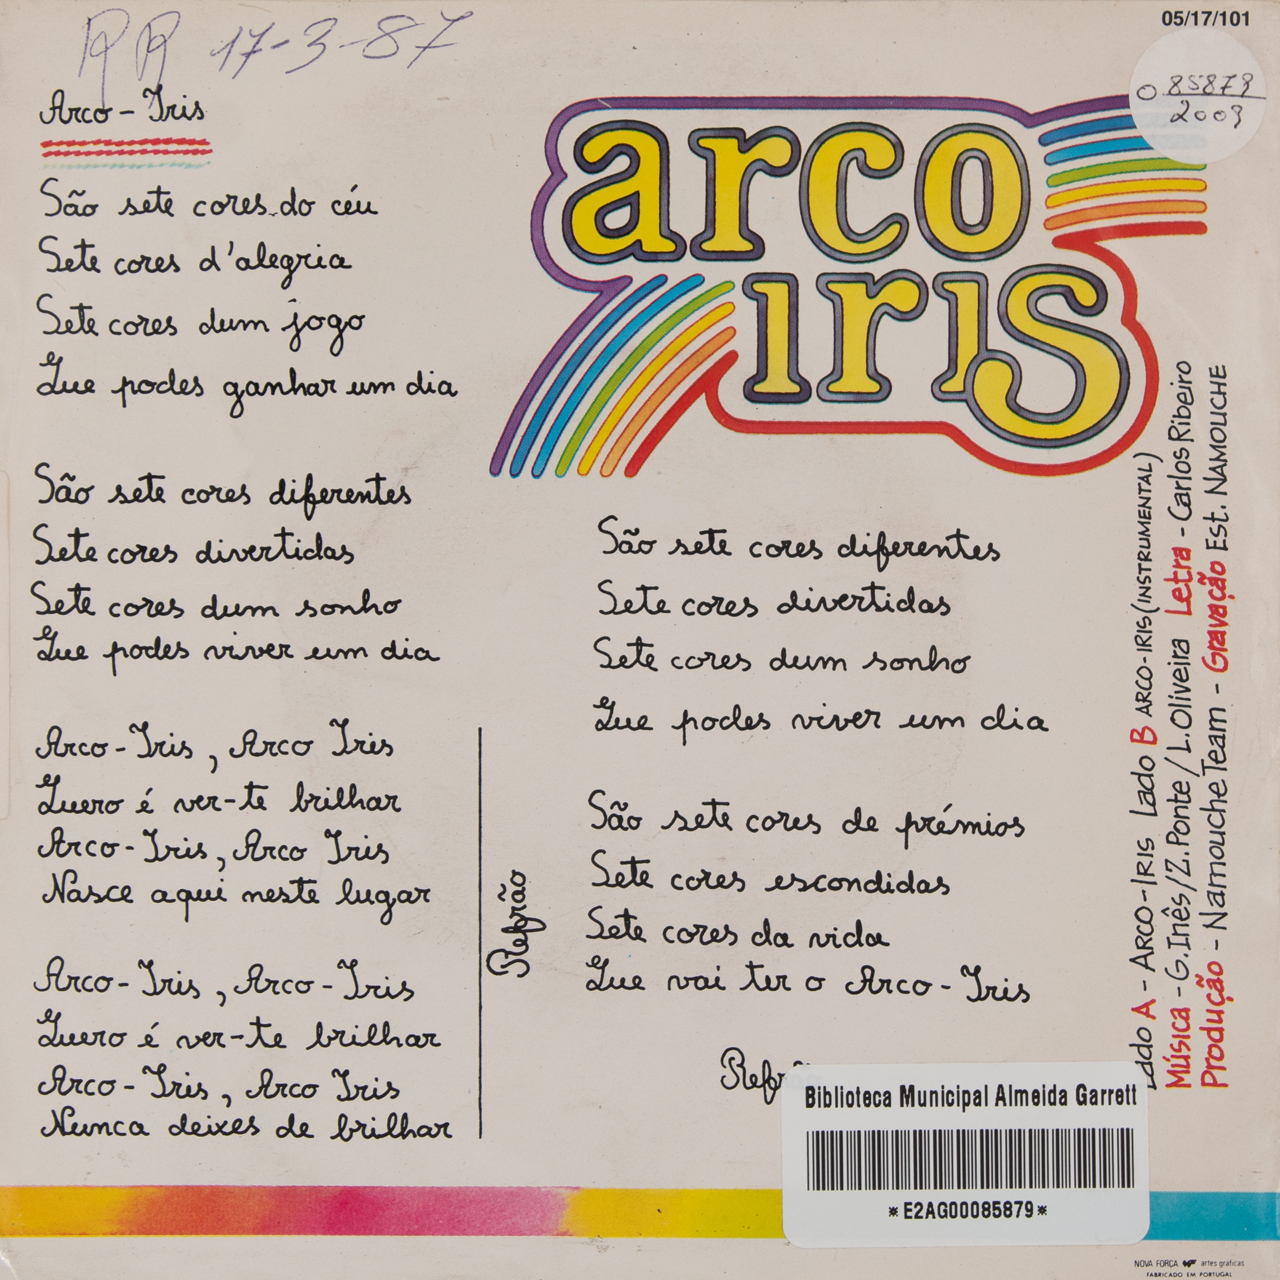 RR 17-3-87
05/17/101
085879
2003
Arco-Iris
São sete cores do céu
Sete cores d'alegria
Sete cores dum jogo
Que podes ganhar um dia
São sete cores diferentes
Sete cores divertidas
Sete cores dum sonho
Que podes viver um dia
Arco-Iris, Arco Iris
Quero é ver-te brilhar
Arco-Iris, Arco Iris
Nasce aqui neste lugar
Arco-Iris, Arco-Iris
Quero é ver-te brilhar
Arco-Iris, Arco Iris
Nunca deixes de brilhar
Refrão
arco
iris
São sete cores diferentes
Sete cores divertidas
Sete cores dum sonho
Que podes viver um dia
São sete cores de prémios
Sete cores escondidas
Sete cores da vida
Que vai ter o Arco-Iris
Refrão
Lado A - ARCO-IRIS Lado B ARCO-IRIS (INSTRUMENTAL)
Música - G. Inês / Z. Ponte / L. Oliveira Letra - Carlos Ribeiro
Produção - Namouche Team - Gravação Est. NAMOUCHE
Biblioteca Municipal Almeida Garrett
*E2AG00085879*
NOVA FORÇA artes gráficas
FABRICADO EM PORTUGAL